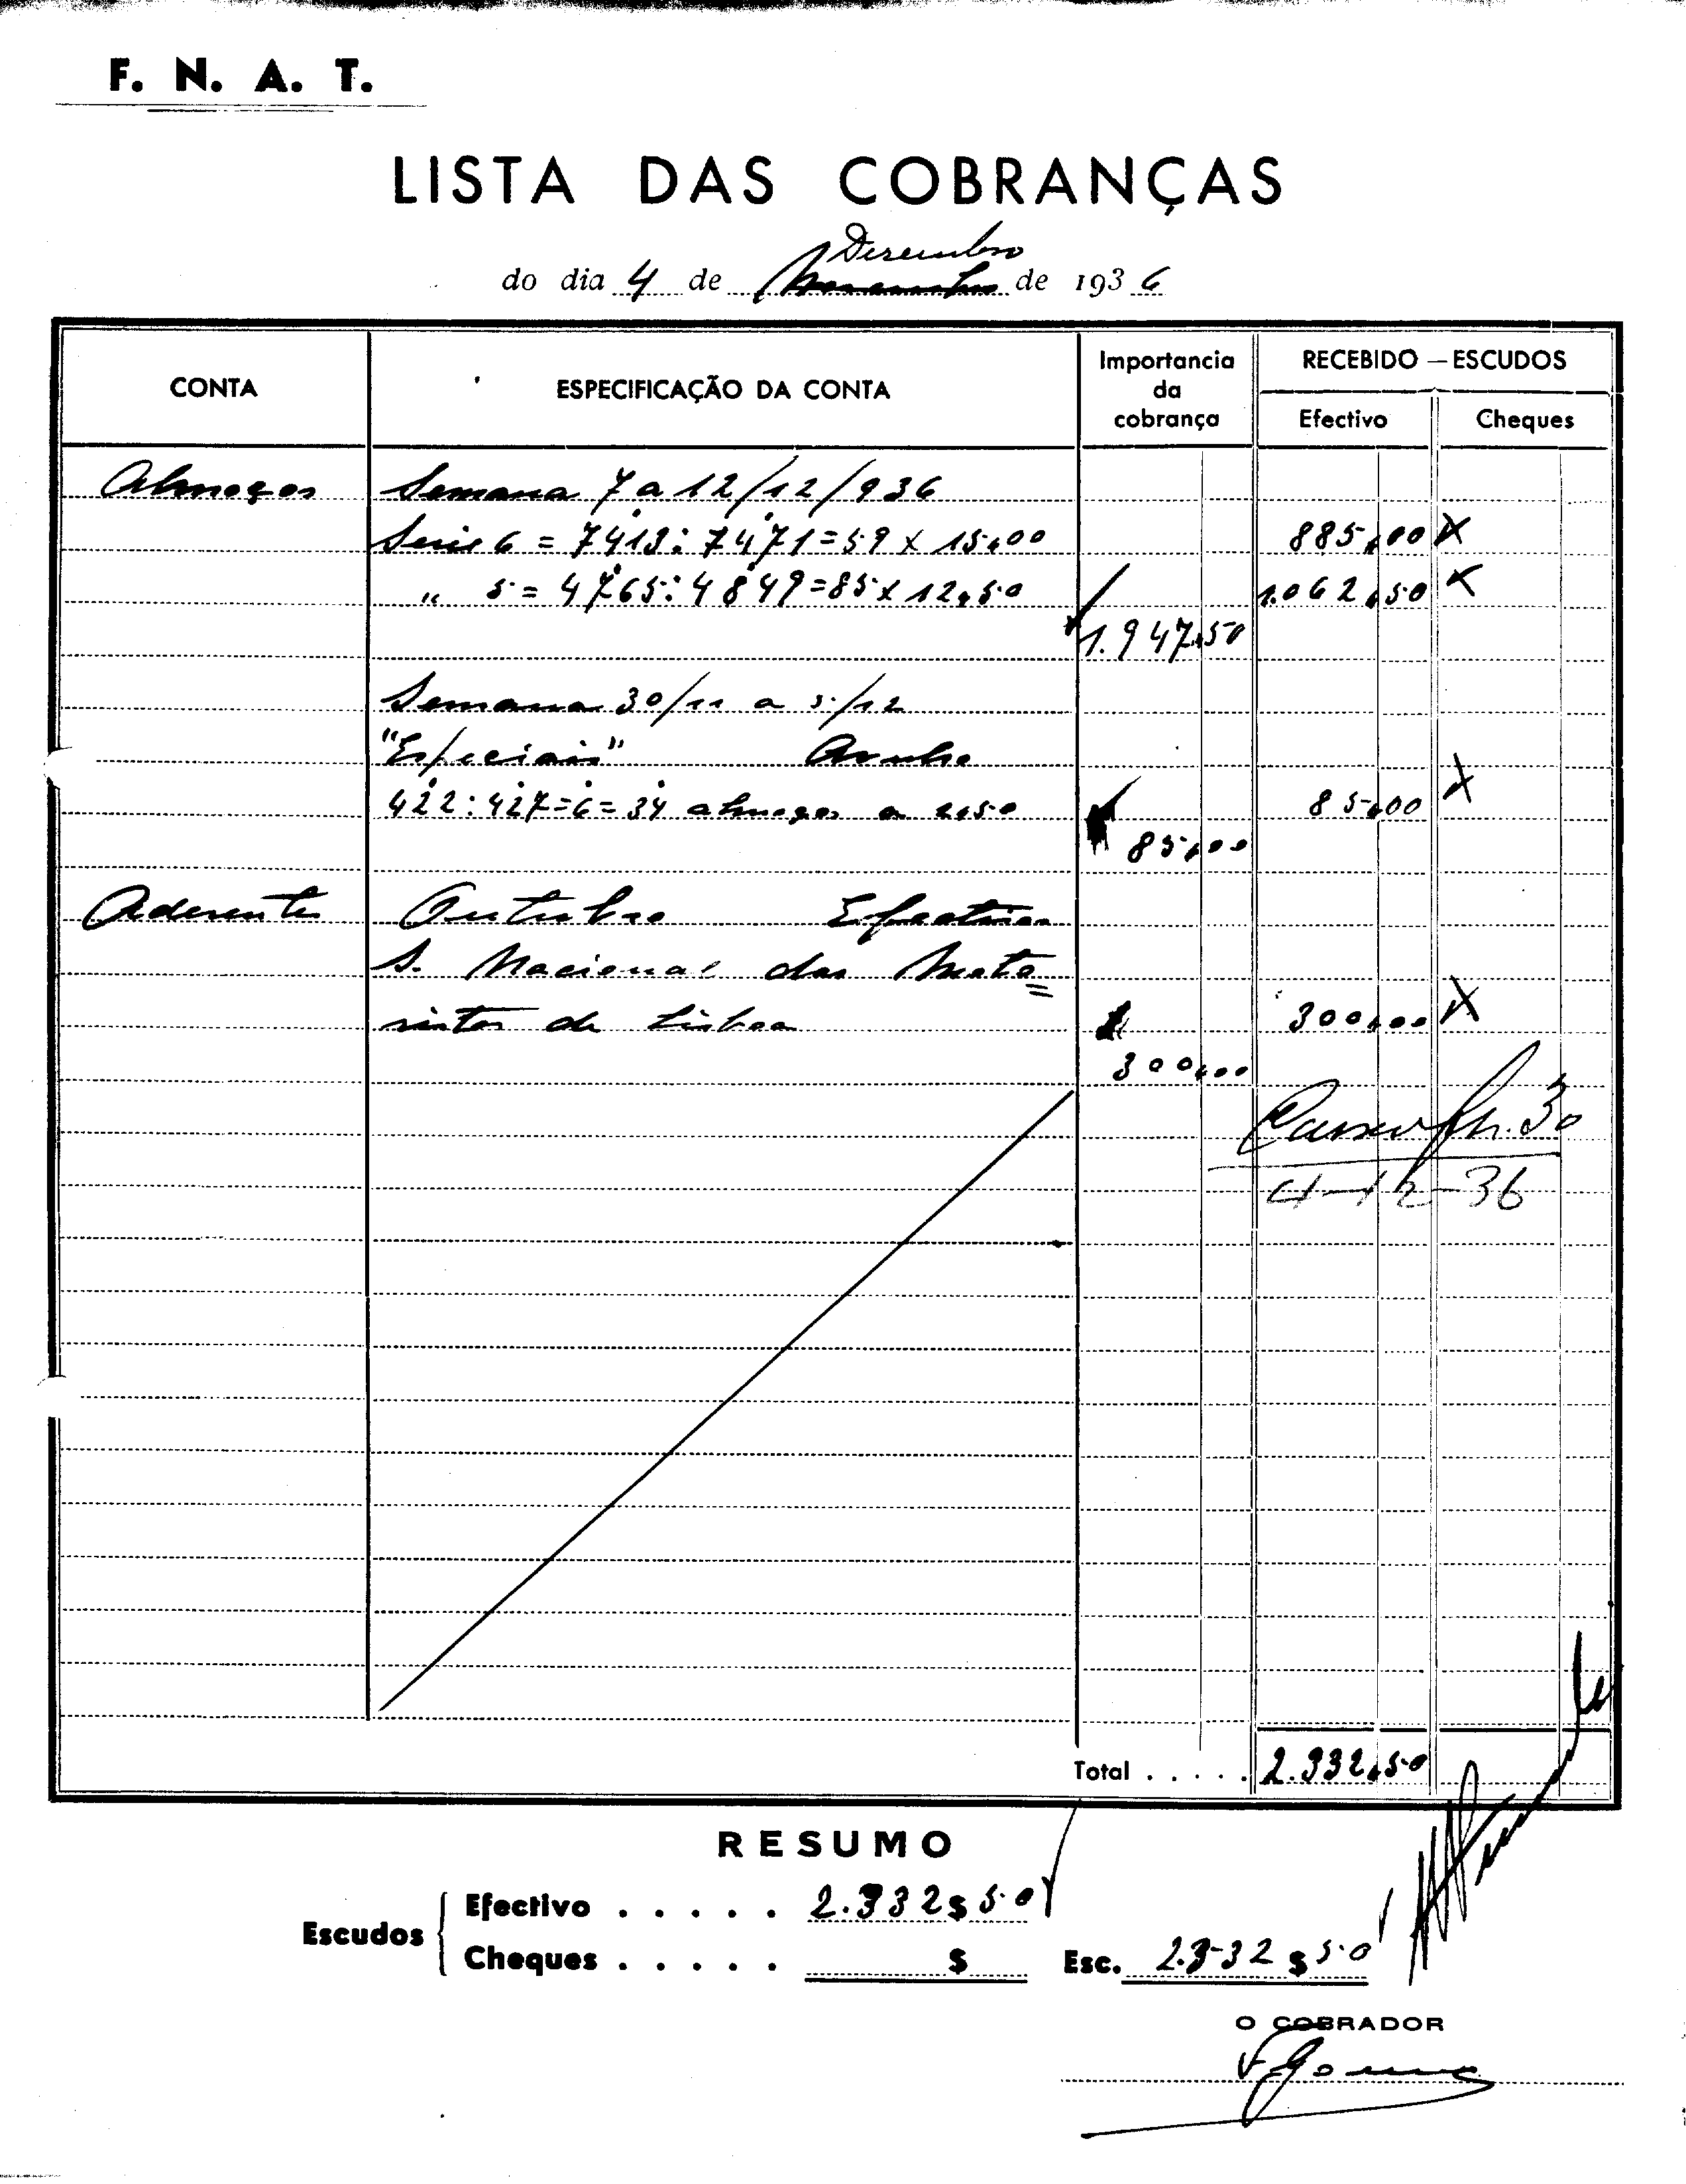 F. N. A. T.
LISTA DAS COBRANÇAS
Dezembro
do dia 4 de Novembro de 1936
CONTA
ESPECIFICAÇÃO DA CONTA
Importancia da cobrança
RECEBIDO — ESCUDOS
Efectivo
Cheques
Almoços Semana 7 a 12/12/936
Serie 6 = 7413: 7471 = 59 x 15$00 885$00 x
" 5 = 4765: 4849 = 85 x 12$50 1.062$50 x
1.947$50
Semana 30/11 a 5/12
"Especiais" Avulso
422: 427 = 6 = 34 almoços a 2$50 85$00 x
85$00
Aderentes Outubro Efectivos
S. Nacional dos Moto
ristas de Lisboa 300$00 x
300$00
30
4-12-36
Total . . . . . 2.332$50
RESUMO
Escudos
Efectivo . . . . . 2.332$50
Cheques . . . . . $
Esc. 2.332$50
O COBRADOR